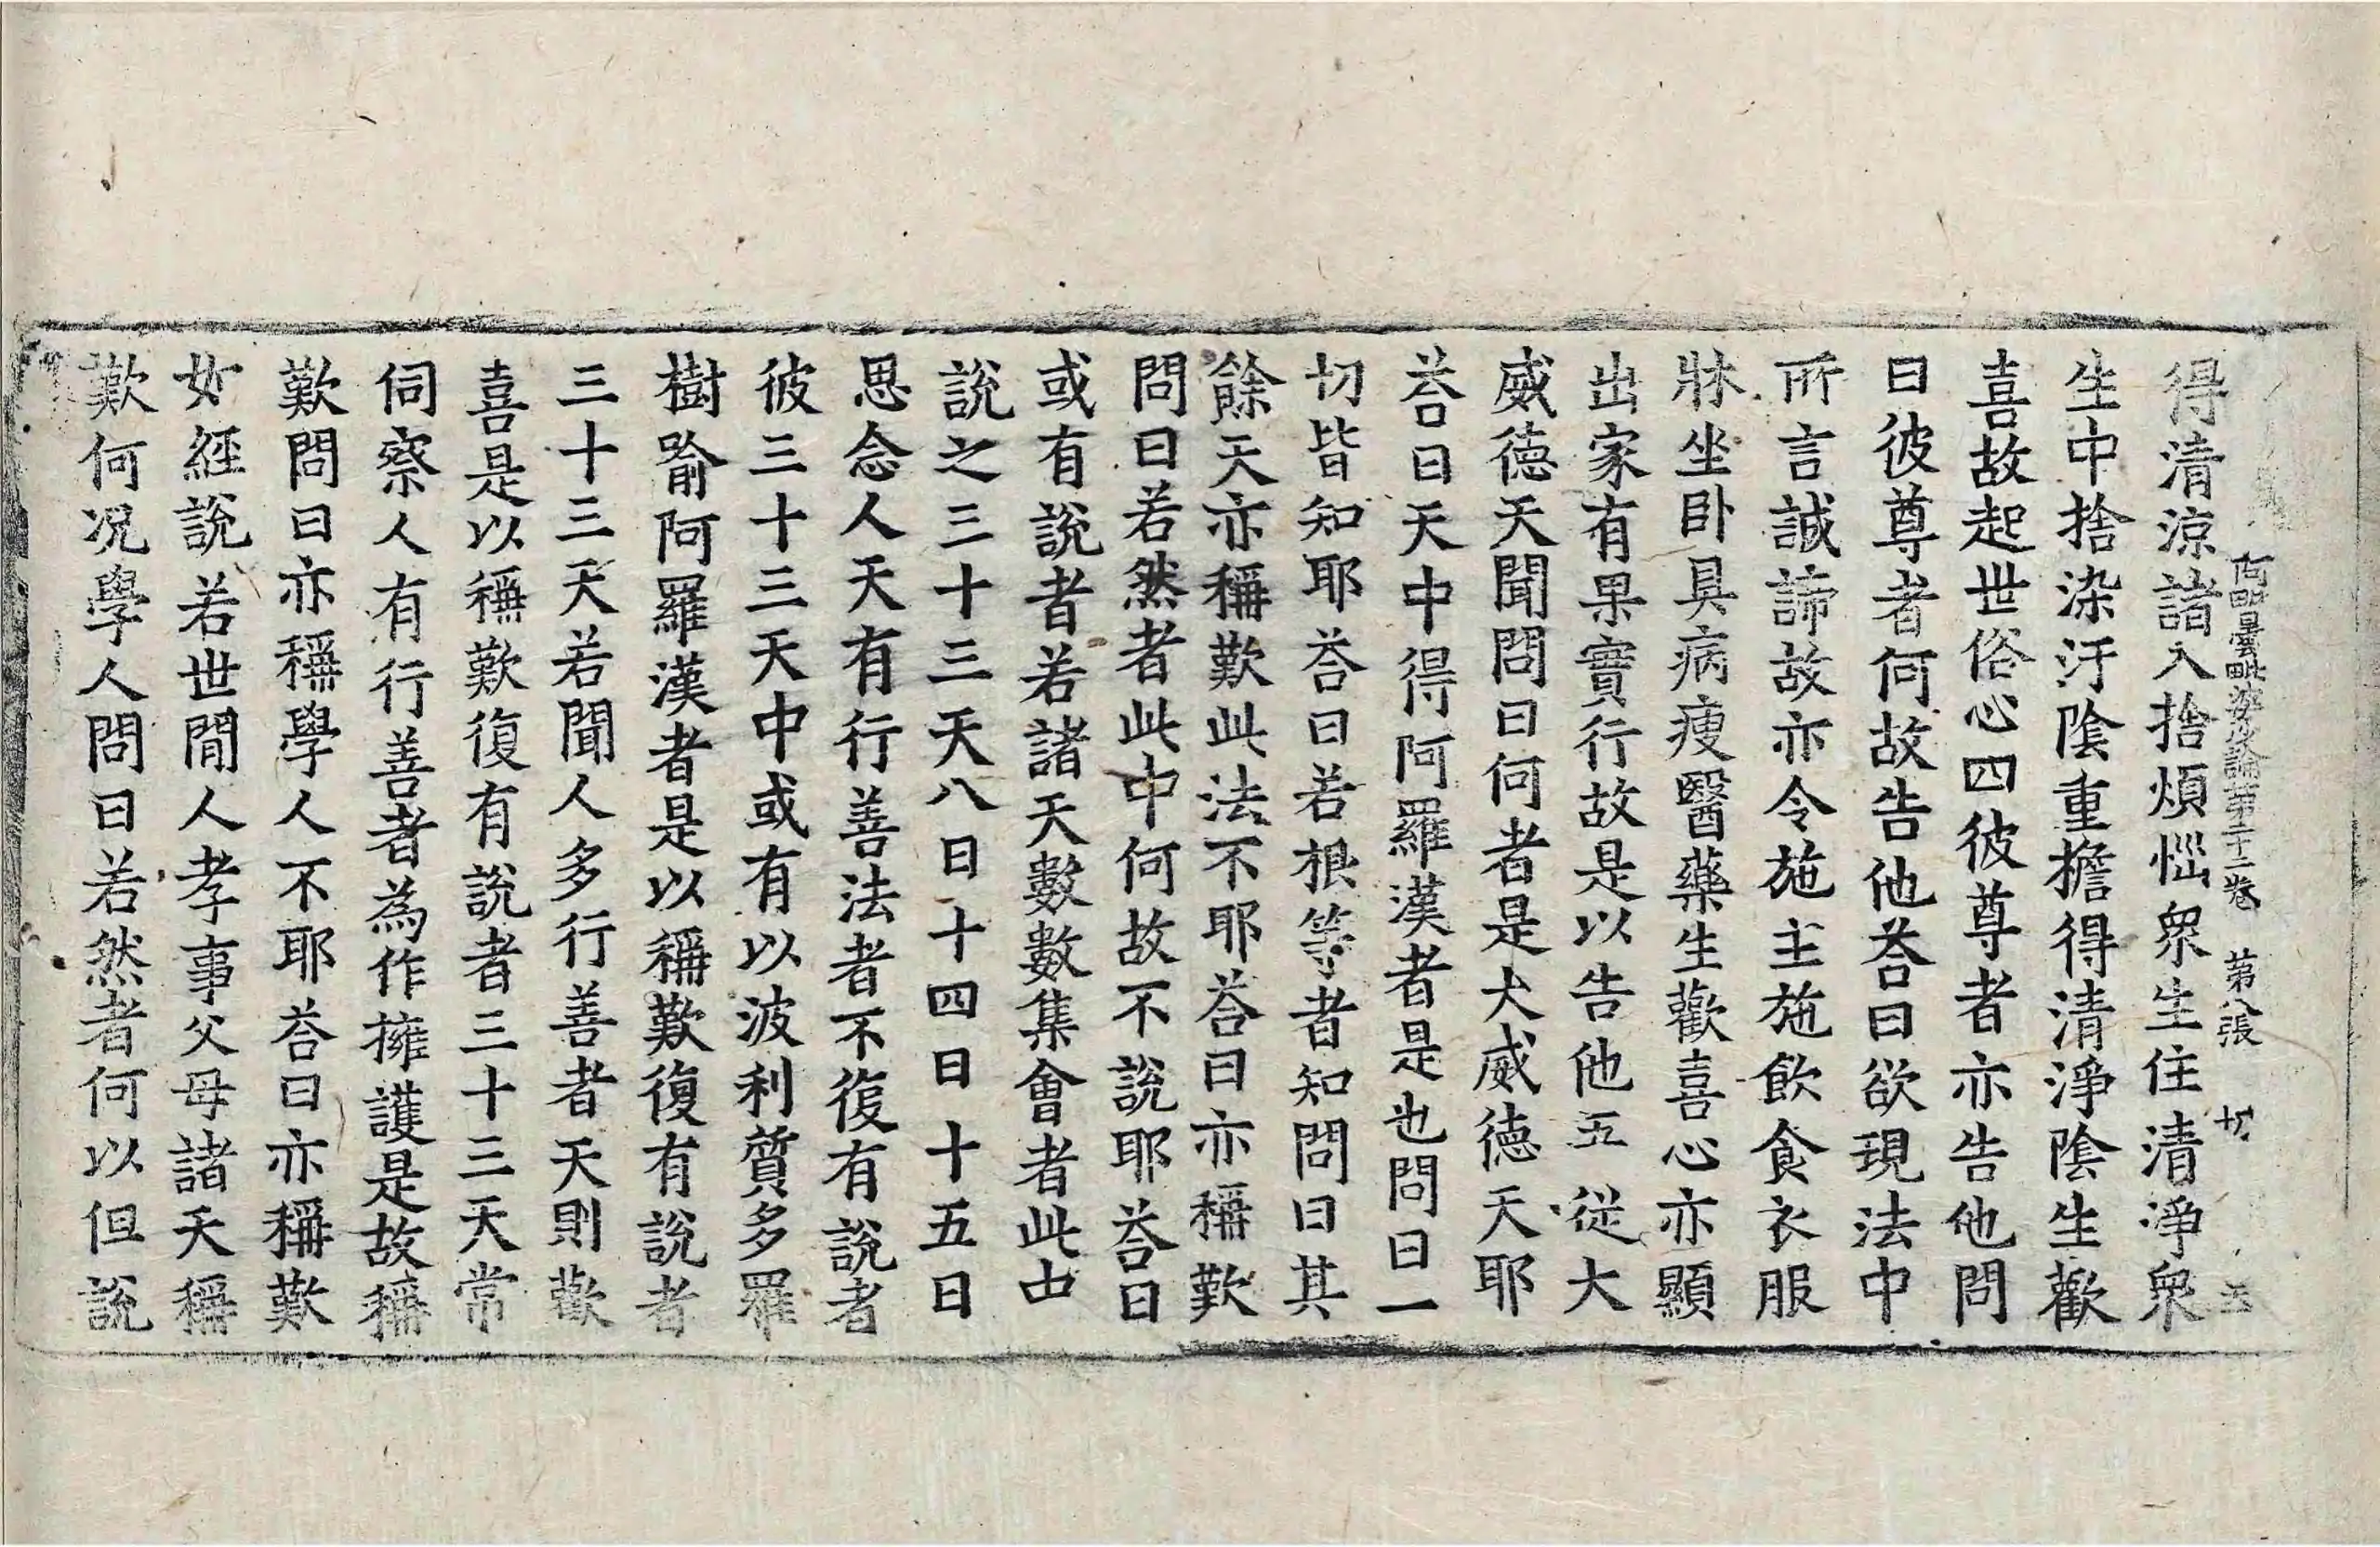 得清涼諸入捨煩惱眾生住清淨眾
阿毗曇毗婆沙論第二十二卷　第八張　廿
生中捨染汙陰重擔得清淨陰生歡
喜故起世俗心四彼尊者亦告他問
曰彼尊者何故告他荅曰欲現法中
所言誠諦故亦令施主施飲食衣服
牀坐卧具病瘦醫藥生歡喜心亦顯
出家有果實行故是以告他五從大
威德天聞問曰何者是大威德天耶
荅曰天中得阿羅漢者是也問曰一
切皆知耶荅曰若根等者知問曰其
餘天亦稱歎此法不耶荅曰亦稱歎
問曰若然者此中何故不說耶荅曰
或有說者若諸天數數集會者此中
說之三十三天八日十四日十五日
思念人天有行善法者不復有說者
彼三十三天中或有以波利質多羅
樹喻阿羅漢者是以稱歎復有說者
三十三天若聞人多行善者天則歡
喜是以稱歎復有說者三十三天常
伺察人有行善者為作擁護是故稱
歎問曰亦稱學人不耶荅曰亦稱歎
如經說若世間人孝事父母諸天稱
歎何況學人問曰若然者何以但說